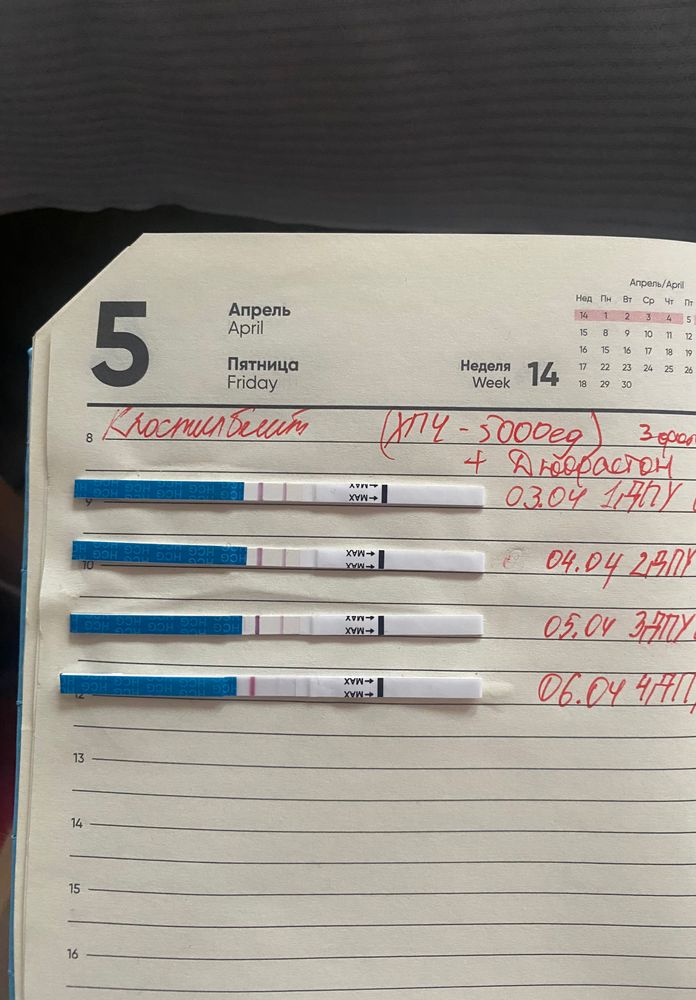 5
Апрель
April
Пятница
Friday
Неделя
Week
14
Апрель/April
Нед Пн Вт Ср Чт Пт
14 1 2 3 4 5
15 8 9 10 11 12
16 15 16 17 18 19
17 22 23 24 25 26
18 29 30
8
(ХПЧ - 5000ед)
+ Дюфрастон
9
HCG HCG HCG HCG
MAX
MAX
03.04 1ДПУ
10
HCG HCG HCG HCG
MAX
MAX
04.04 2ДПУ
HCG HCG HCG HCG
MAX
MAX
05.04 3ДПУ
12
HCG HCG HCG HCG
MAX
MAX
06.04 4ДП
13
14
15
16